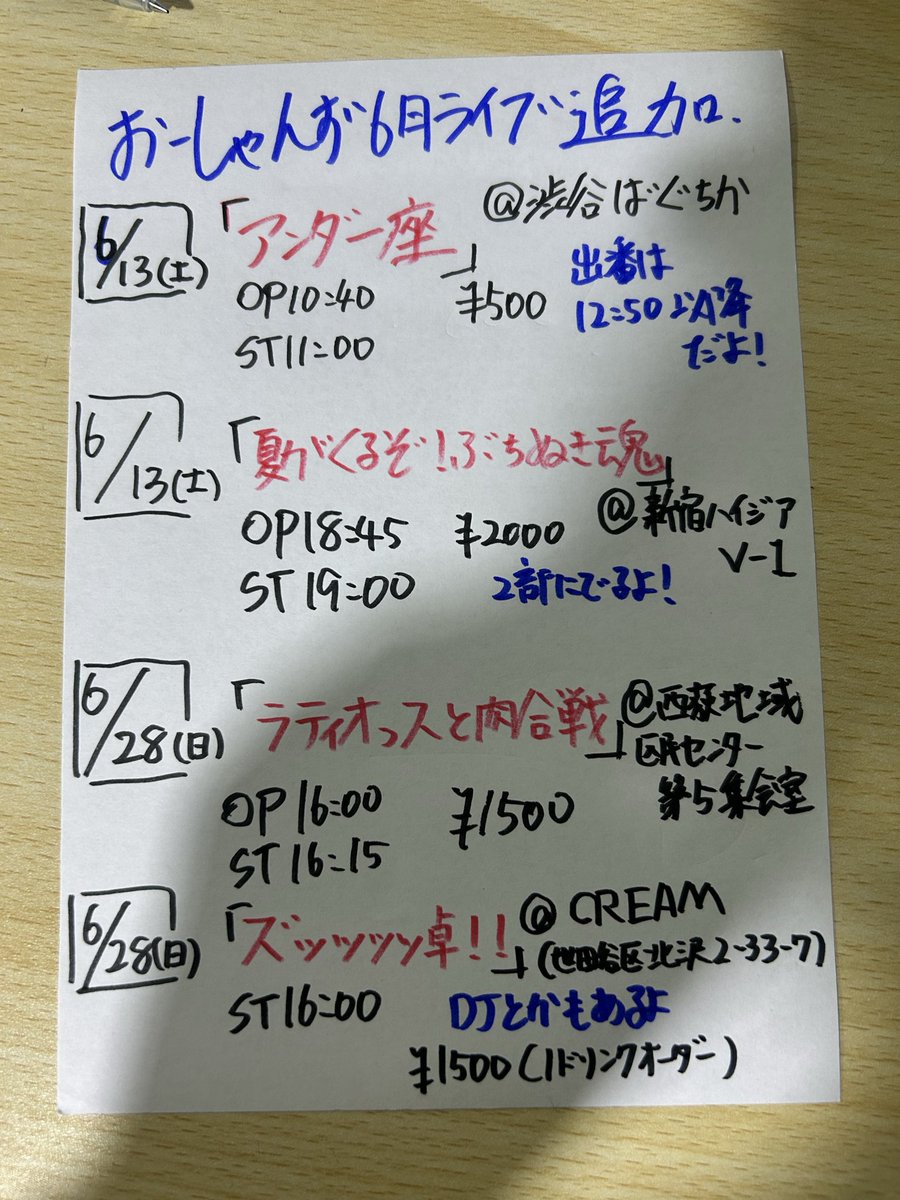 おーしゃんず6月ライブ追加.
6/13(土)
「アンダー座」
@渋谷ばぐちか
OP10:40
ST11:00
¥500
出番は
12:50以降
だよ!
6/13(土)
「夏がくるぞ!ぶちぬき魂」
@新宿ハイジア
V-1
OP18:45
ST19:00
¥2000
2部にでるよ!
6/28(日)
「ラティオっスと肉合戦」
@西荻地域
区民センター
第5集会室
OP16:00
ST16:15
¥1500
6/28(日)
「ズッッッッ卓!!」
@CREAM
(世田谷区北沢2-33-7)
ST16:00
DJとかもあるよ
¥1500(1ドリンクオーダー)